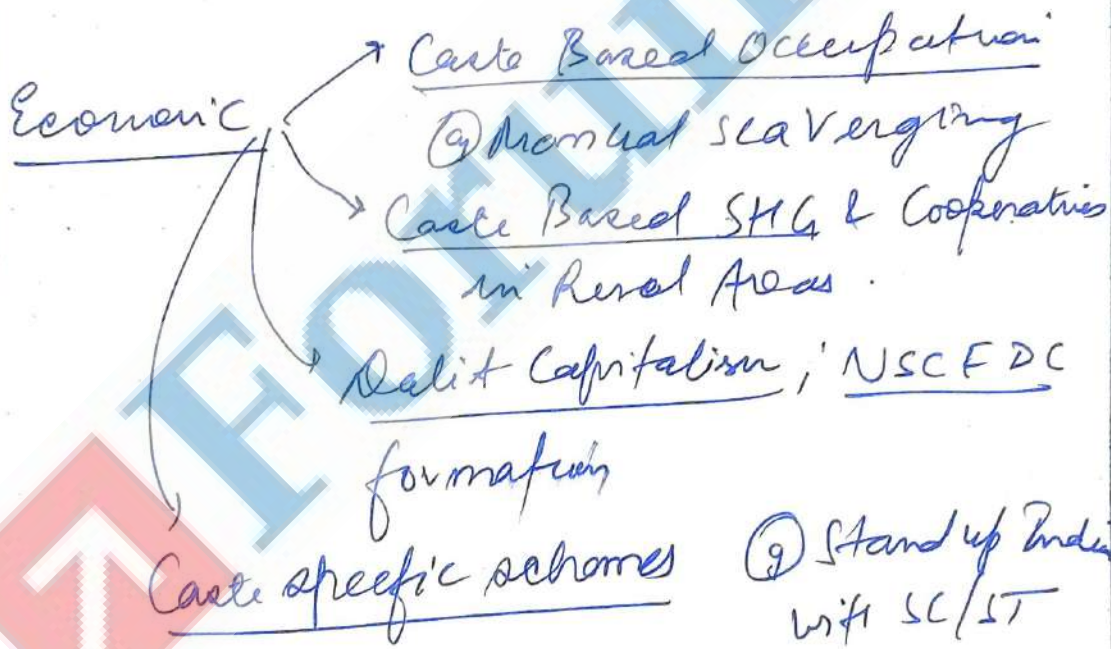 Caste Based Occupation
Economic
eg Manual scaVenging
Caste Based SHG & Cooperatives
in Rural Areas.
Dalit Capitalism; NSCFDC
formation
Caste specific schemes eg Stand up India
with SC/ST
Forum